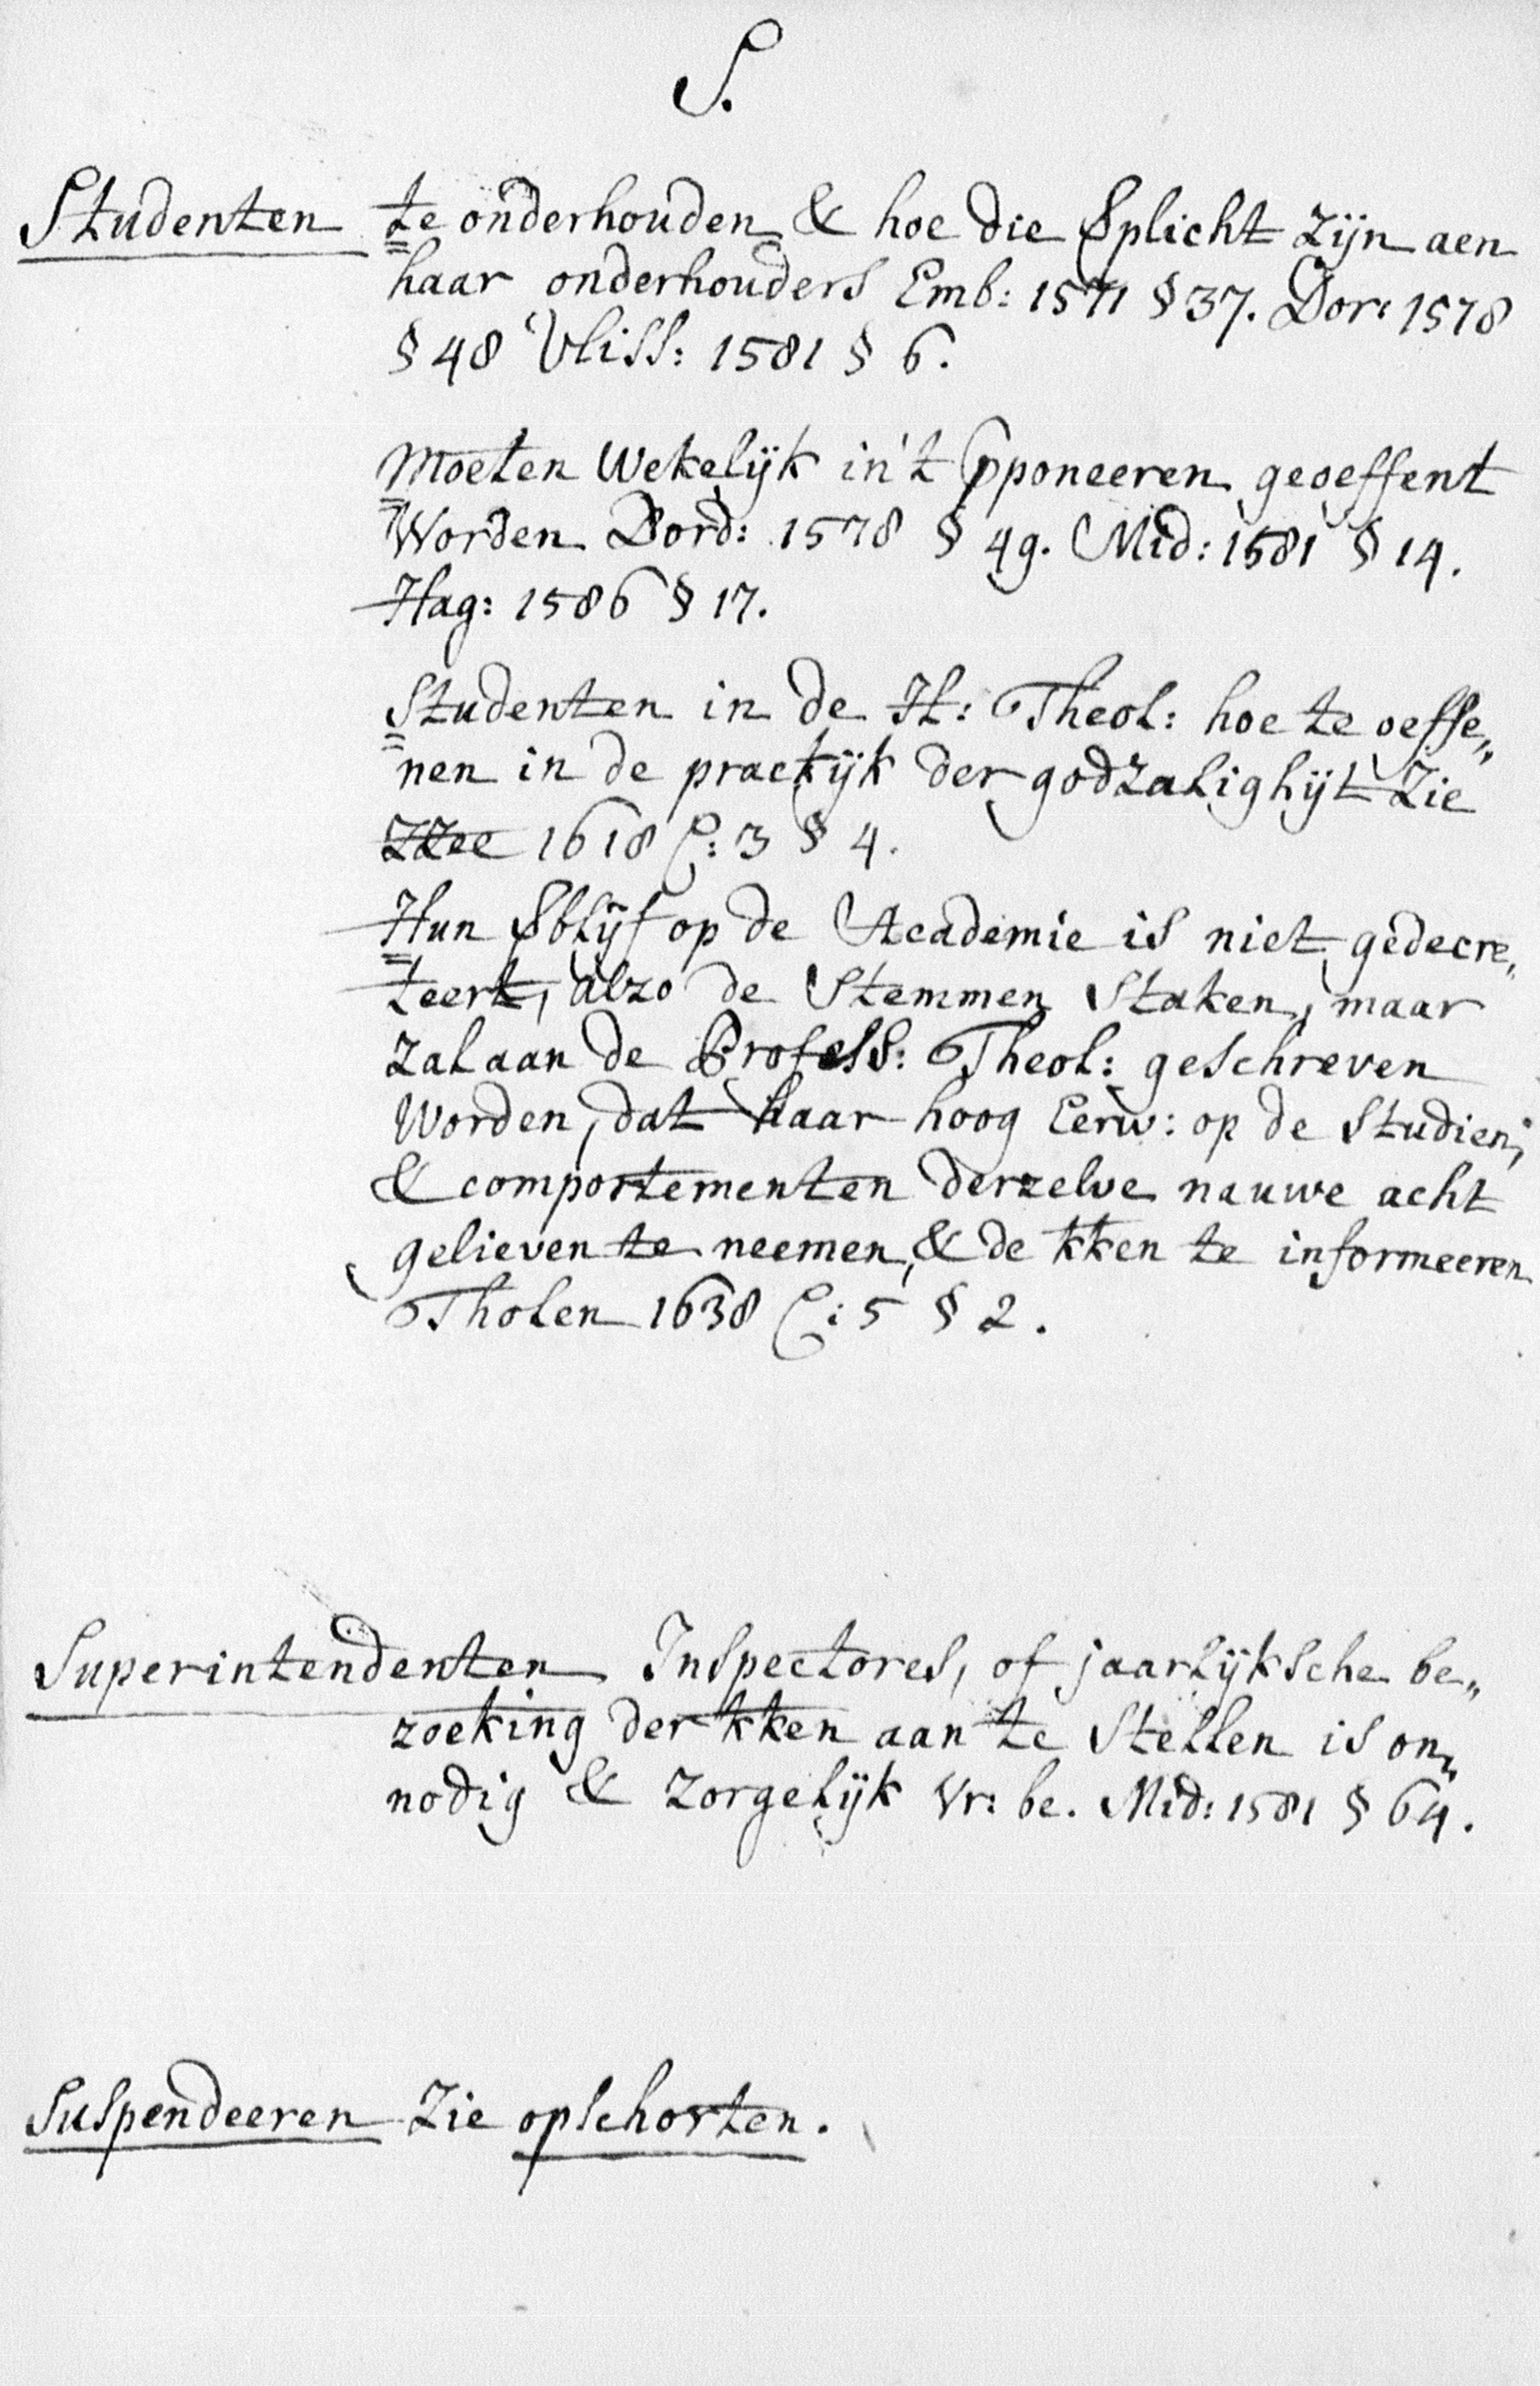 S.
Studenten te onderhouden & hoe die Vplicht zijn aen
haar onderhouders Emb: 1571 § 37. Dor: 1578
§ 48 Vliss: 1581 § 6.
Moeten Wekelijk in't Opponeeren geoeffent
Worden Dord: 1578 § 49. Mid: 1581 § 14.
Hag: 1586 § 17.
Studenten in de H: Theol: hoe te oeffe„
nen in de practijk der godzalighijt Zie
ZZee 1618 C: 3 § 4.
Hun Vblijf op de Academie is niet gedecre„
teert, alzo de Stemmen Staken, maar
zal aan de Profess: Theol: geschreven
Worden, dat haar hoog Eerw: op de Studien,
& comportementen derzelve nauwe acht
gelieven te neemen, & de kken te informeeren
Tholen 1638 C: 5 § 2.
Superintendenten Inspectores, of jaarlijksche be„
zoeking der kken aan te Stellen is on„
nodig & zorgelijk Vr: be. Mid: 1581 § 64.
Suspendeeren Zie opschorten.